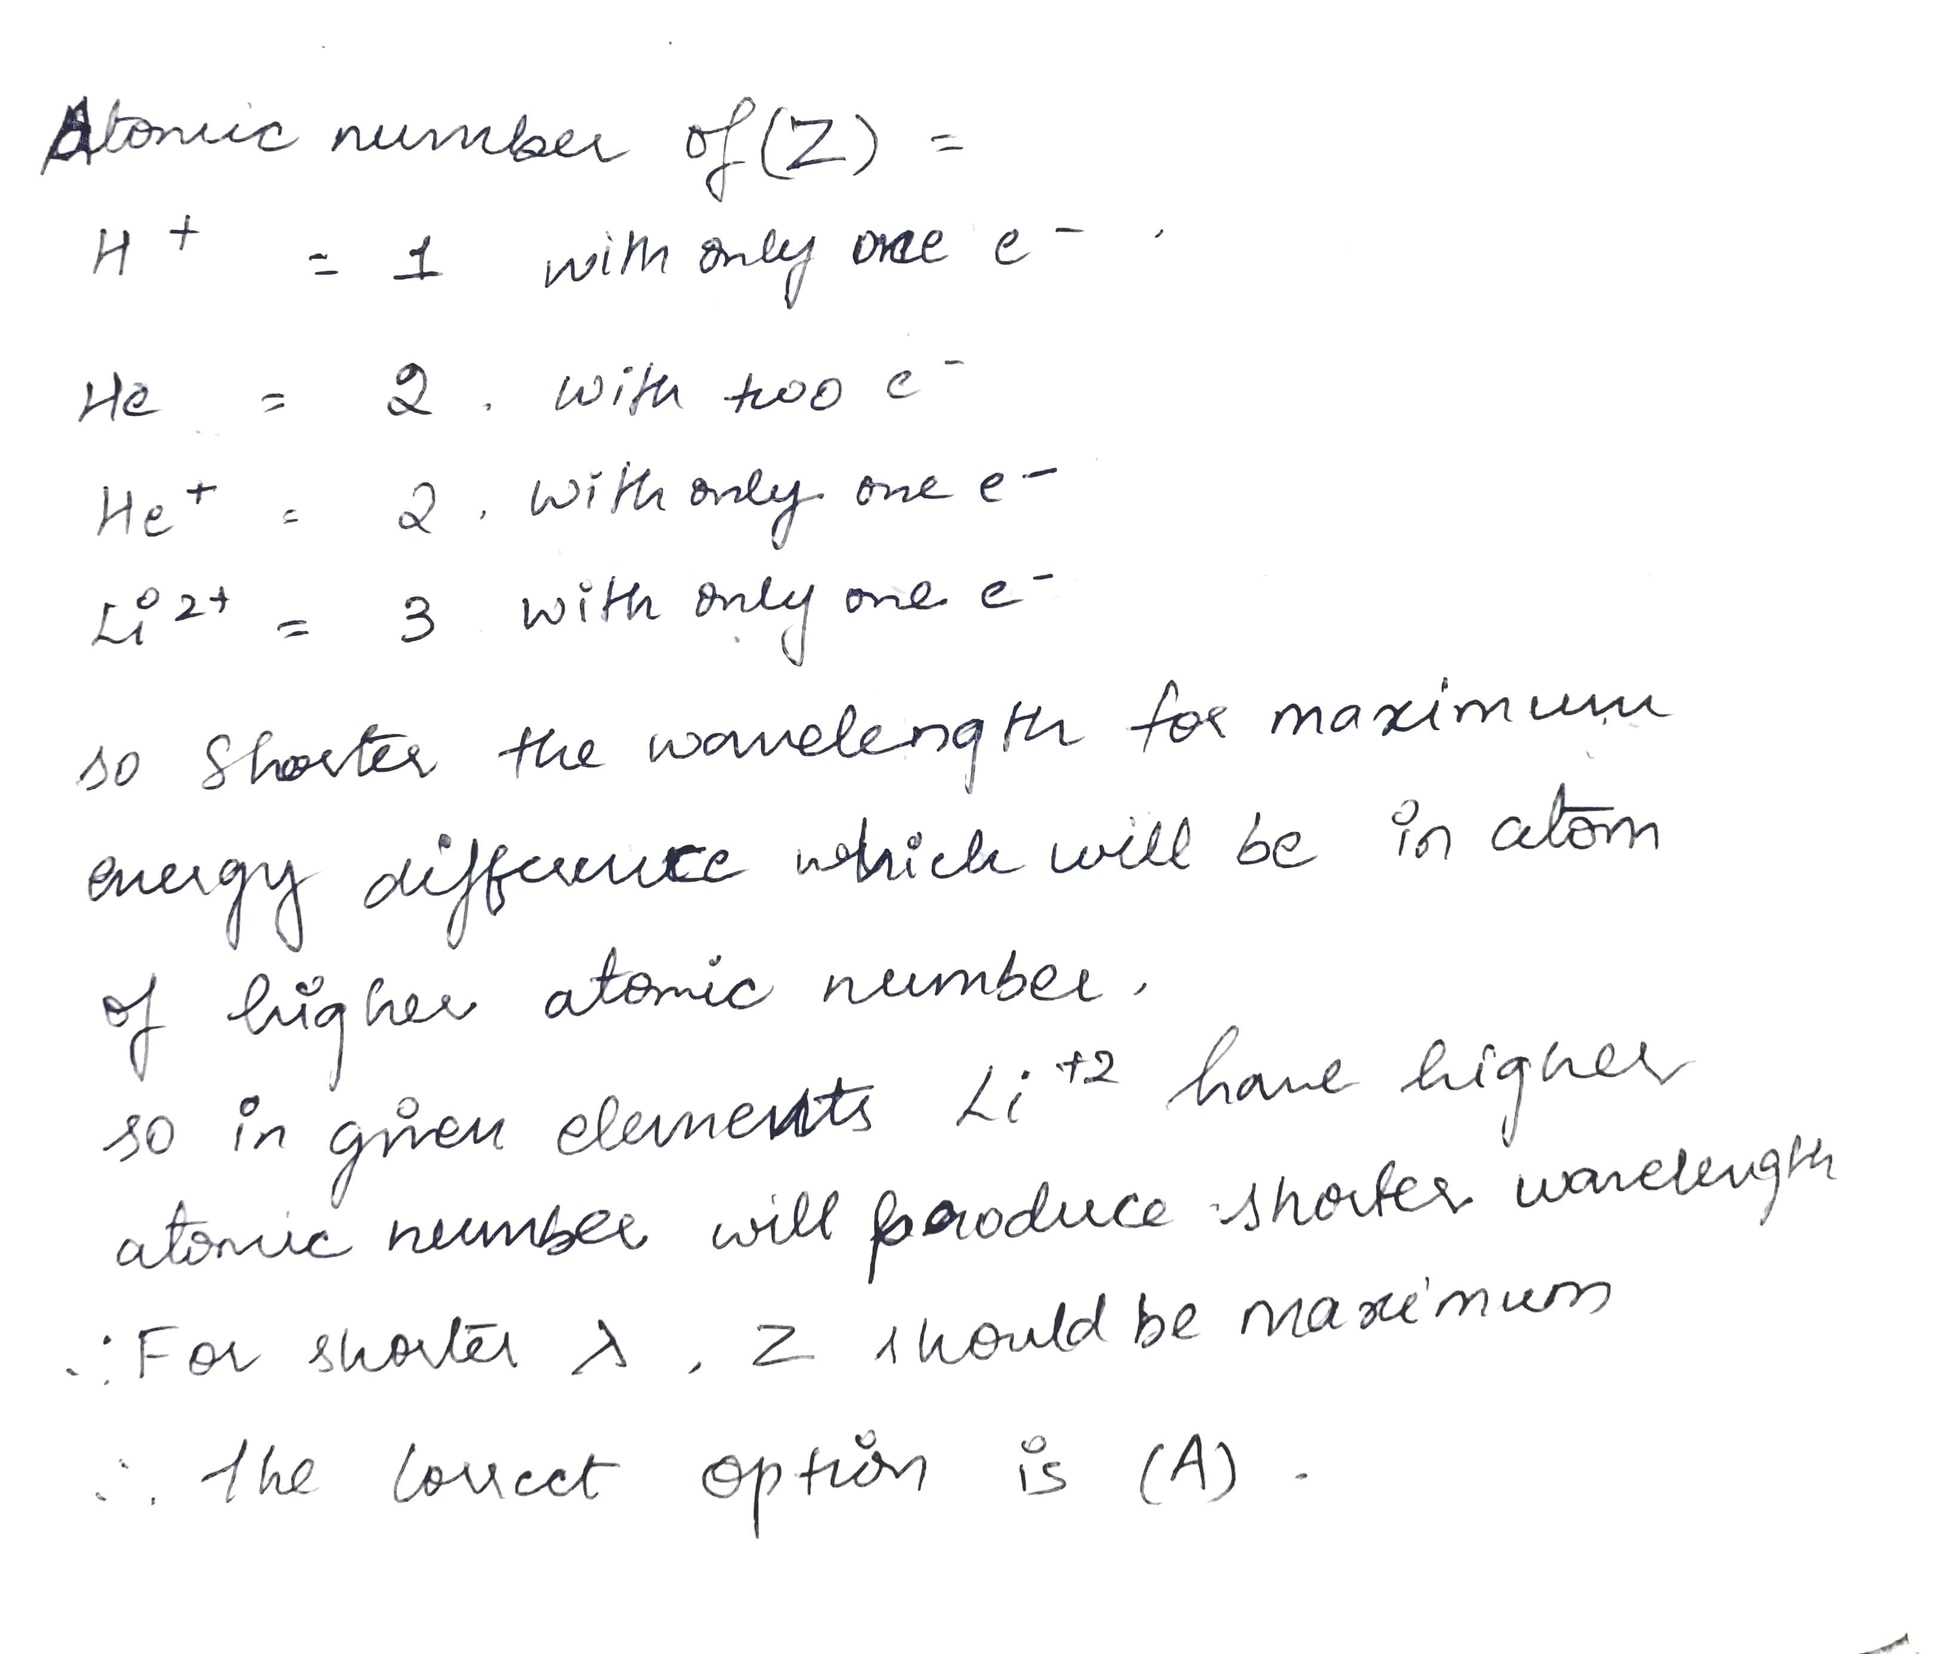 Atomic number of (Z) =
H+ = 1 with only one e-.
He = 2. with two e-
He+ = 2. with only one e-
Li2+ = 3 with only one e-
so Shorter the wavelength for maximum
energy difference which will be in atom
of higher atomic number.
so in given elements Li+2 have higher
atomic number will produce shorter wavelength
∴ For shorter λ, Z should be maximum
∴ the correct option is (A).